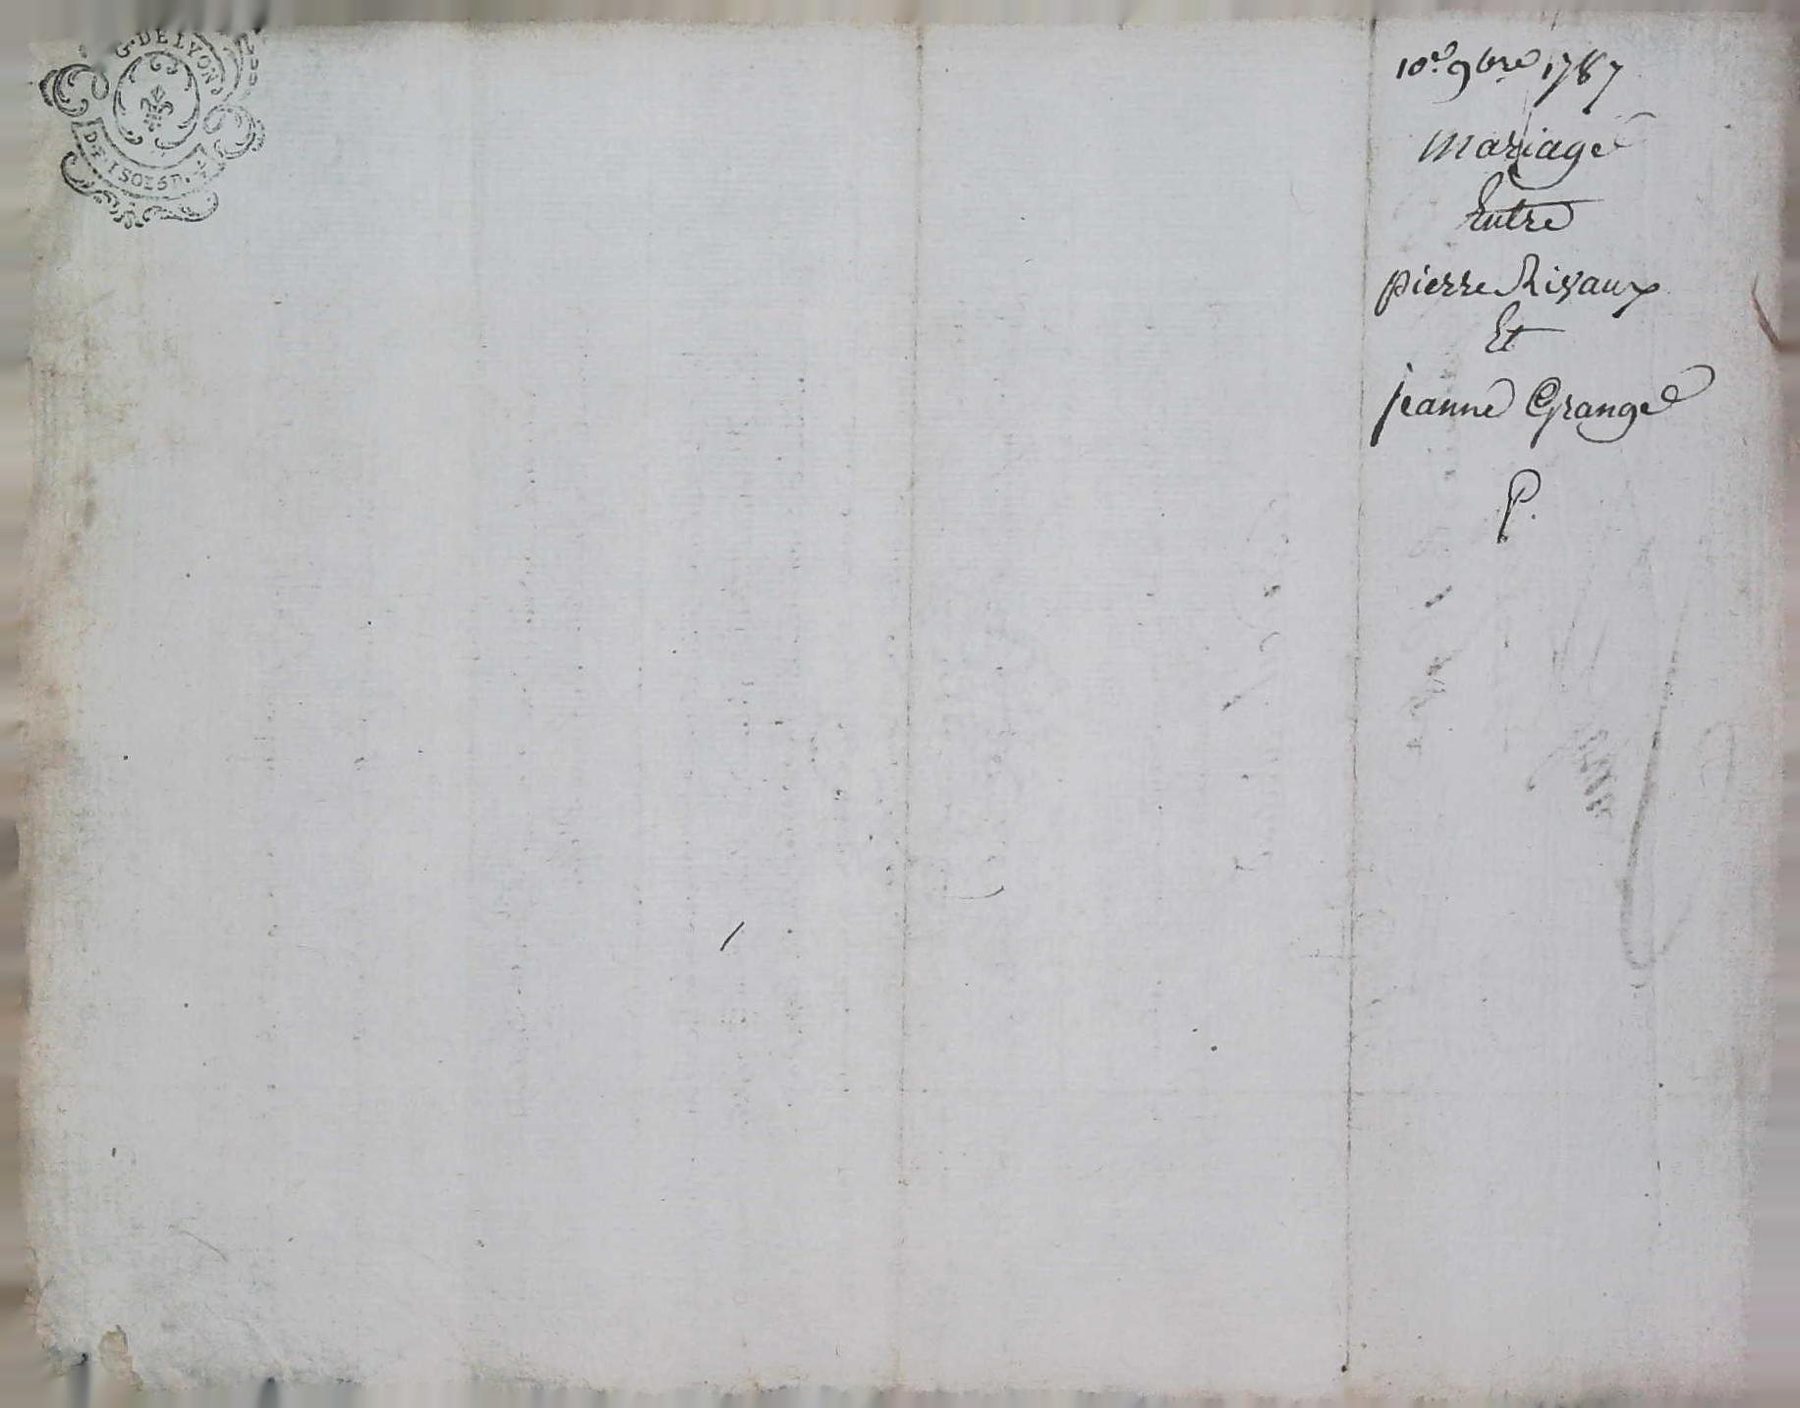 G. DE LYON
10e. 9bre 1787
Mariage
Entre
pierre Rivaux
Et
jeanne Grange
P.